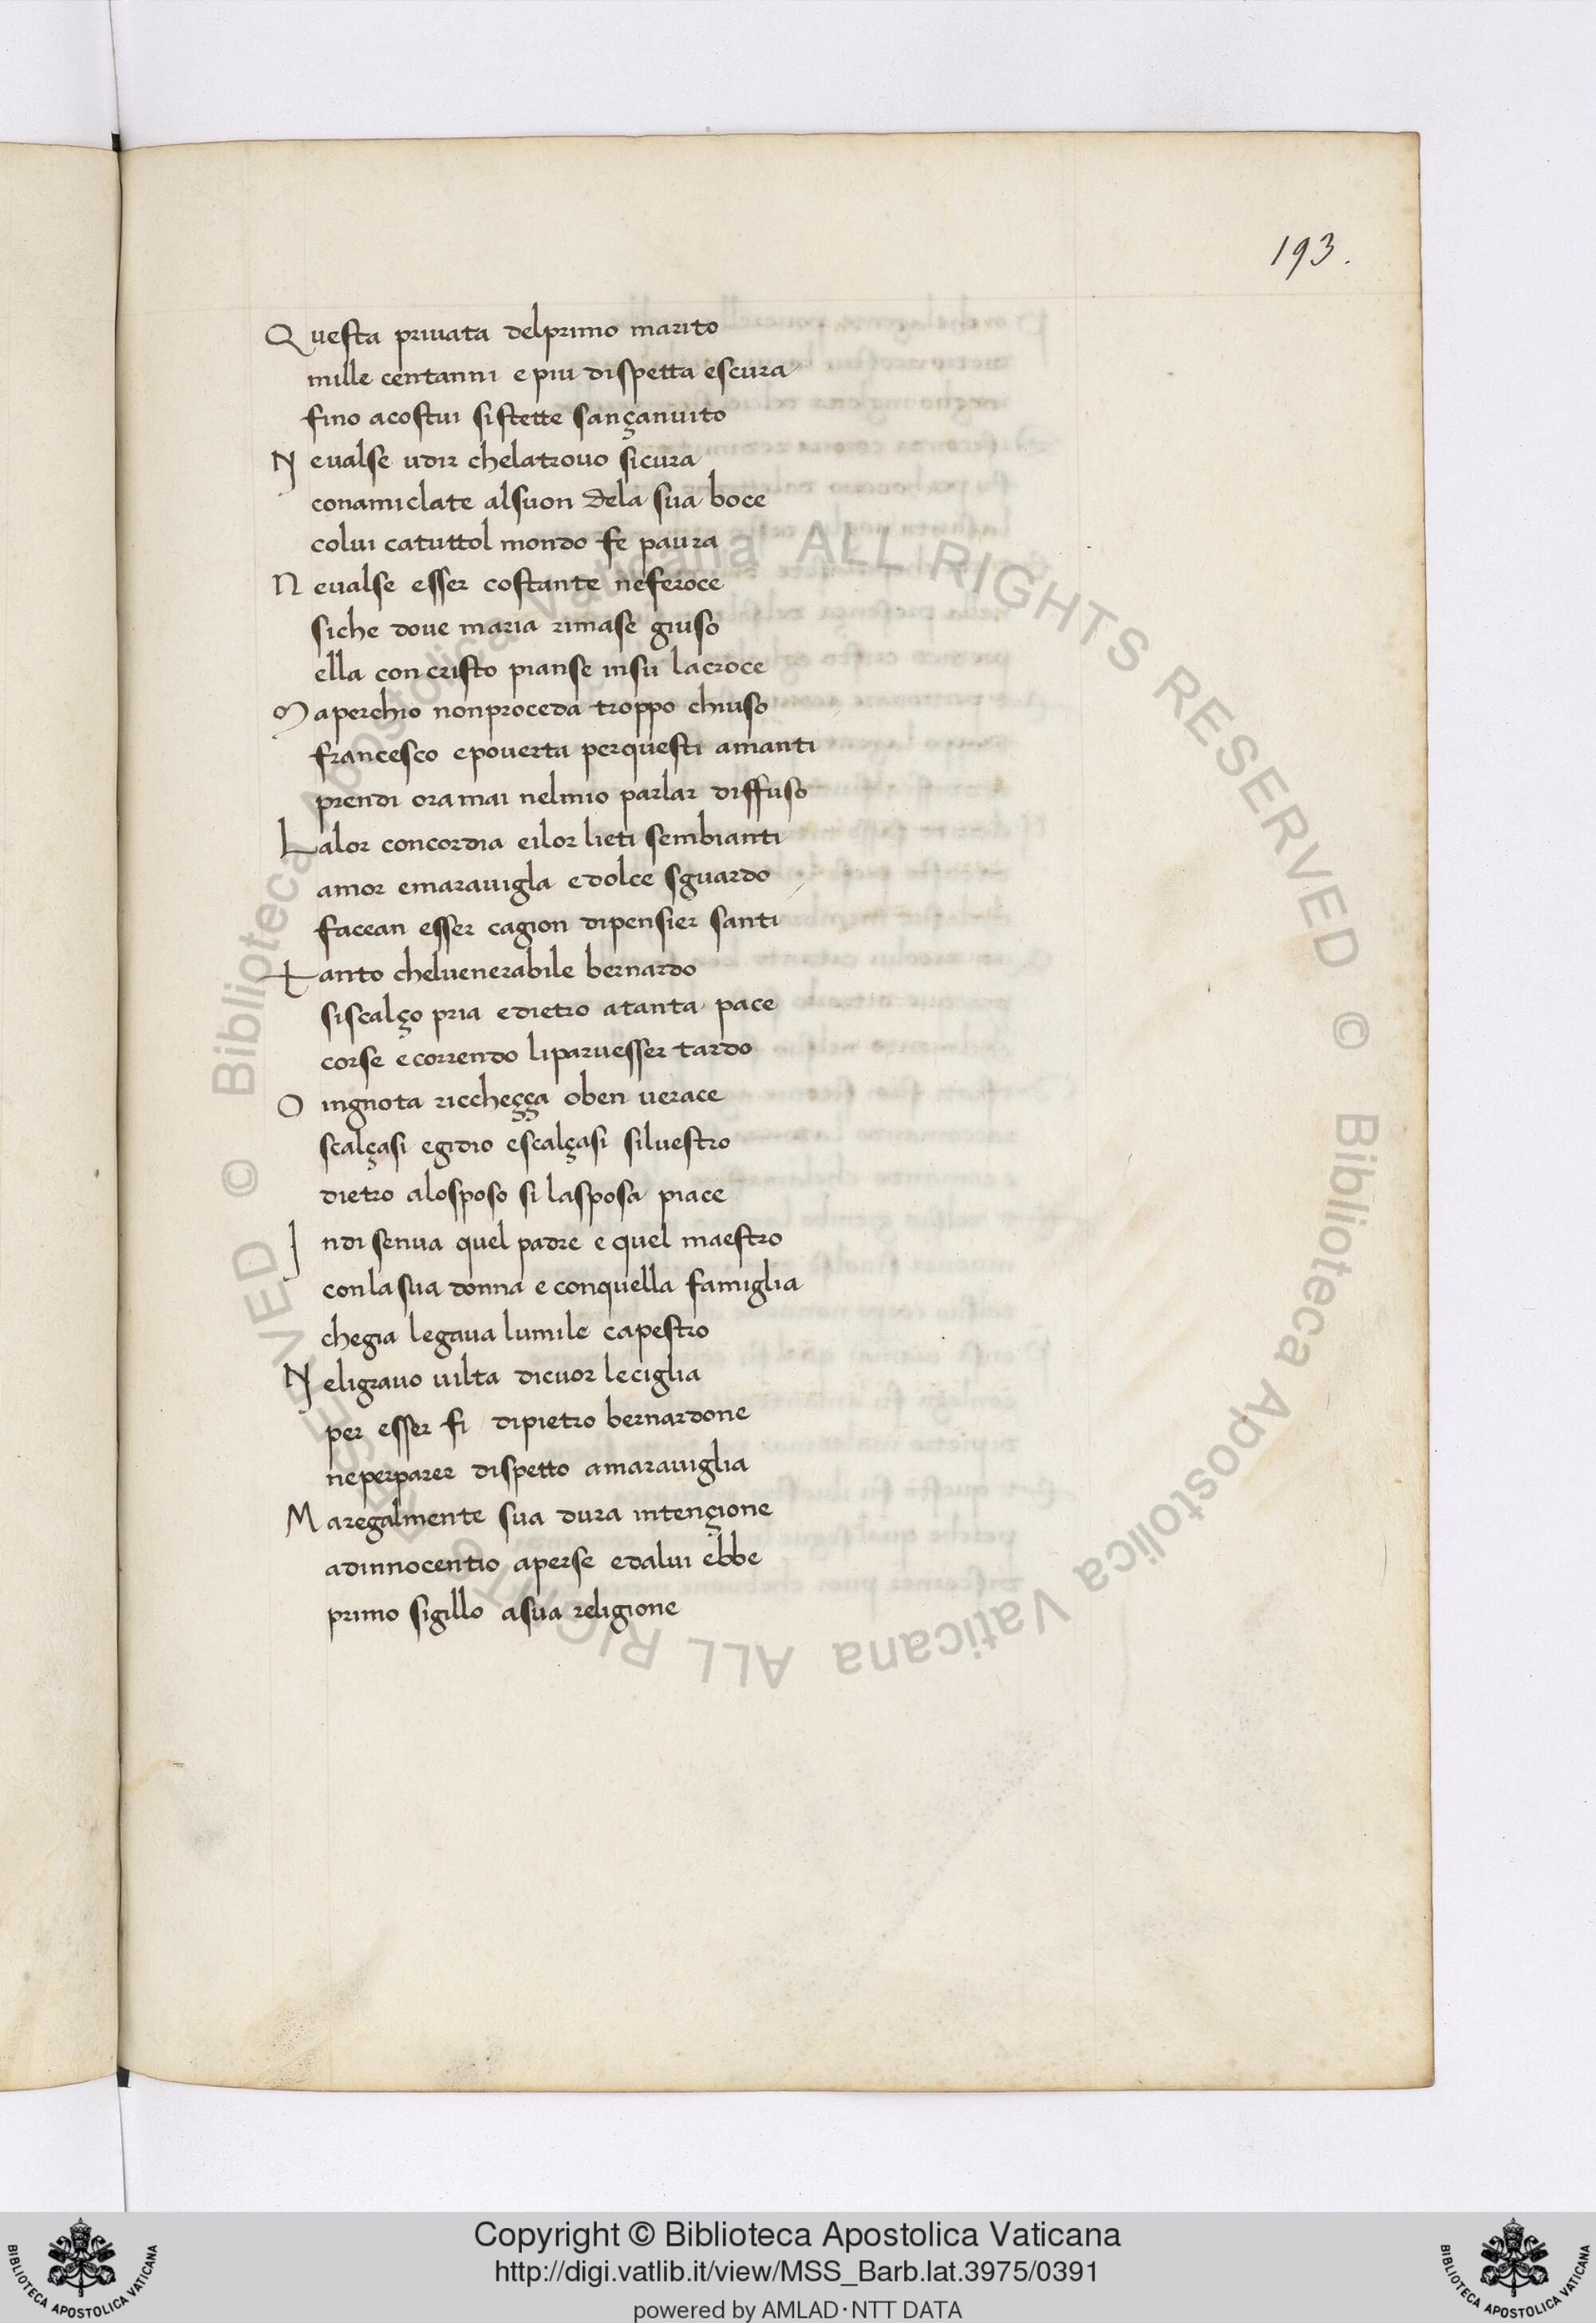 193.
Questa priuata delprimo marito
mille centanni e piu dispetta escura
fino acostui sistette sançanuito
N eualse udir chelatrouo sicura
conamiclate alsuon dela sua boce
colui catuttol mondo fe paura
N eualse esser costante neferoce
siche doue maria rimase giuso
ella con cristo pianse insu lacroce
M aperchio nonproceda troppo chiuso
francesco epouerta perquesti amanti
prendi oramai nelmio parlar diffuso
Lalor concordia eilor lieti sembianti
amor emarauigla edolce sguardo
facean esser cagion dipensier santi
Tanto cheluenerabile bernardo
siscalço pria edietro atanta pace
corse ecorrendo liparuesser tardo
O ingnota riccheçça oben uerace
scalçasi egidio escalçasi siluestro
dietro alosposo si lasposa piace
I ndi senua quel padre e quel maestro
conlasua donna e conquella famiglia
chegia legaua lumile capestro
N eligrauo uilta dicuor leciglia
per esser fi dipietro bernardone
neperparer dispetto amarauiglia
M aregalmente sua dura intençione
adinnocentio aperse edalui ebbe
primo sigillo asua religione
© Biblioteca Apostolica Vaticana ALL RIGHTS RESERVED © Biblioteca Apostolica Vaticana ALL RIGHTS RESERVED
Copyright © Biblioteca Apostolica Vaticana
http://digi.vatlib.it/view/MSS_Barb.lat.3975/0391
powered by AMLAD·NTT DATA
BIBLIOTECA APOSTOLICA VATICANA
BIBLIOTECA APOSTOLICA VATICANA